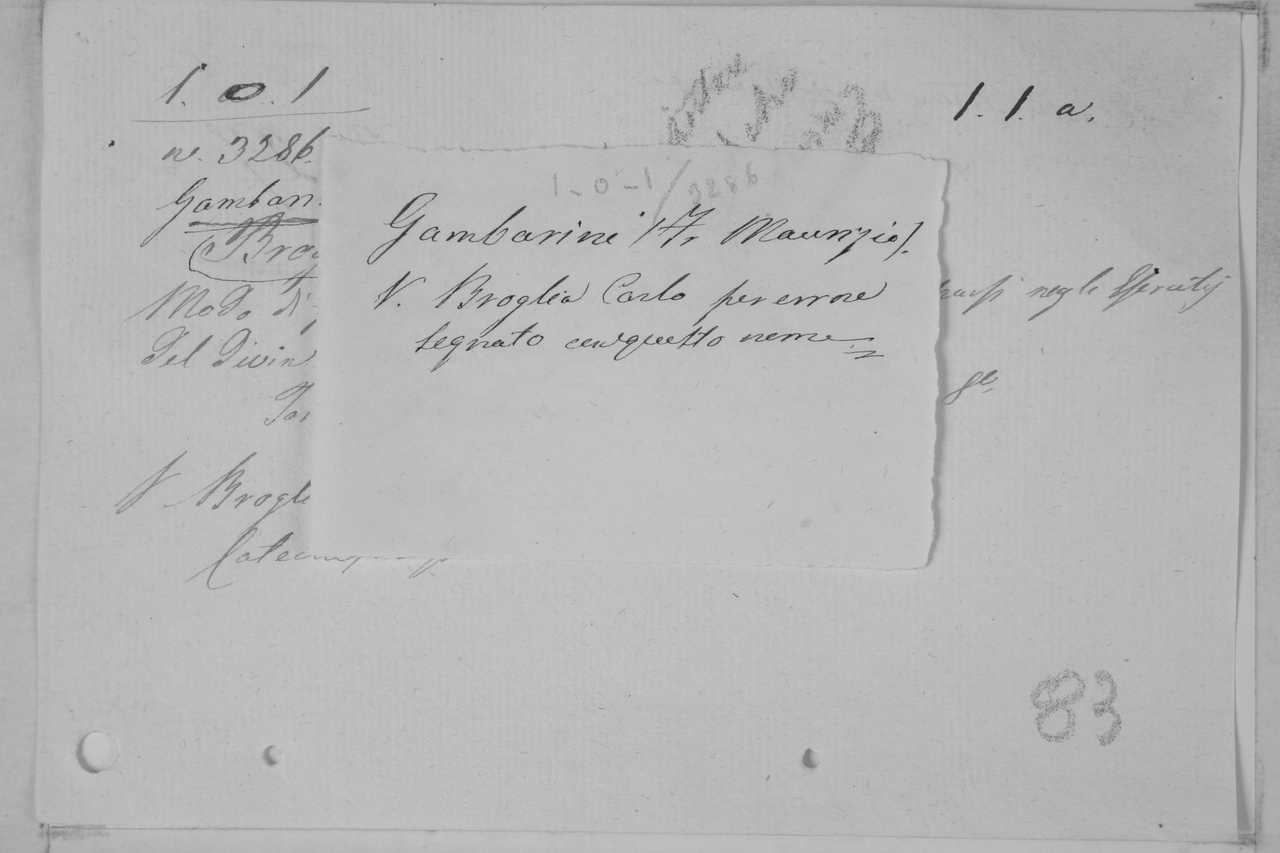 1. 0. 1
1. 1. a.
n. 3286.
Gambar
(Brog
Modo di
del Divin
N Brogl
1-0-1/3286
Gambarini (Fr Maurizio).
V. Broglia Carlo per errore
segnato con questo nome
negli Esercitij
83